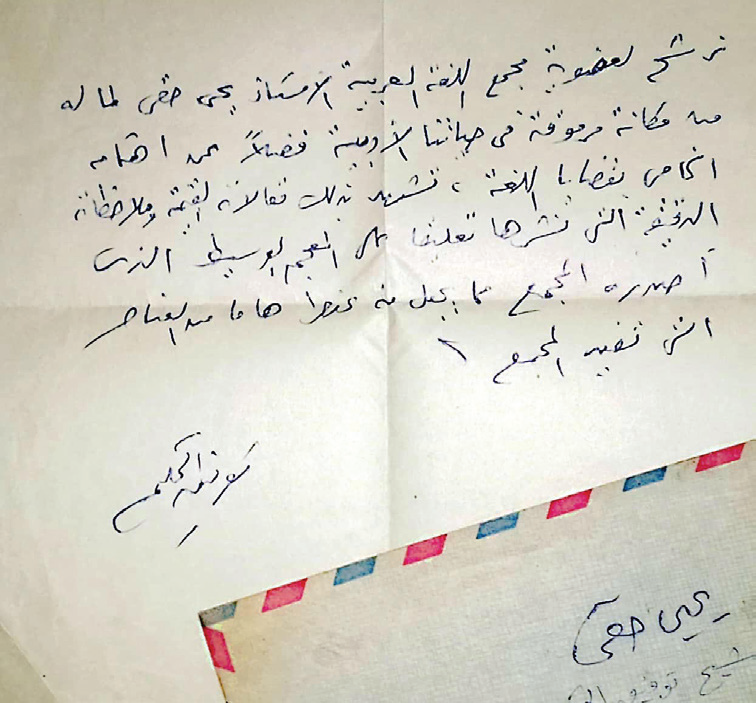 نرشح لعضوية مجمع اللغة العربية الأستاذ يحيى حقى لما له
من مكانة مرموقة فى حياتنا الأدبية فضلاً عن اهتمامه
الخاص بقضايا اللغة، تشهد بذلك مقالاته القيمة وملاحظاته
الدقيقة التى نشرها تعليقا على المعجم الوسيط الذى
أصدره المجمع مما يجعل منه عنصرا هاما من العناصر
التى تفيد المجمع
توفيق الحكيم
يحيى حقى
توفيق